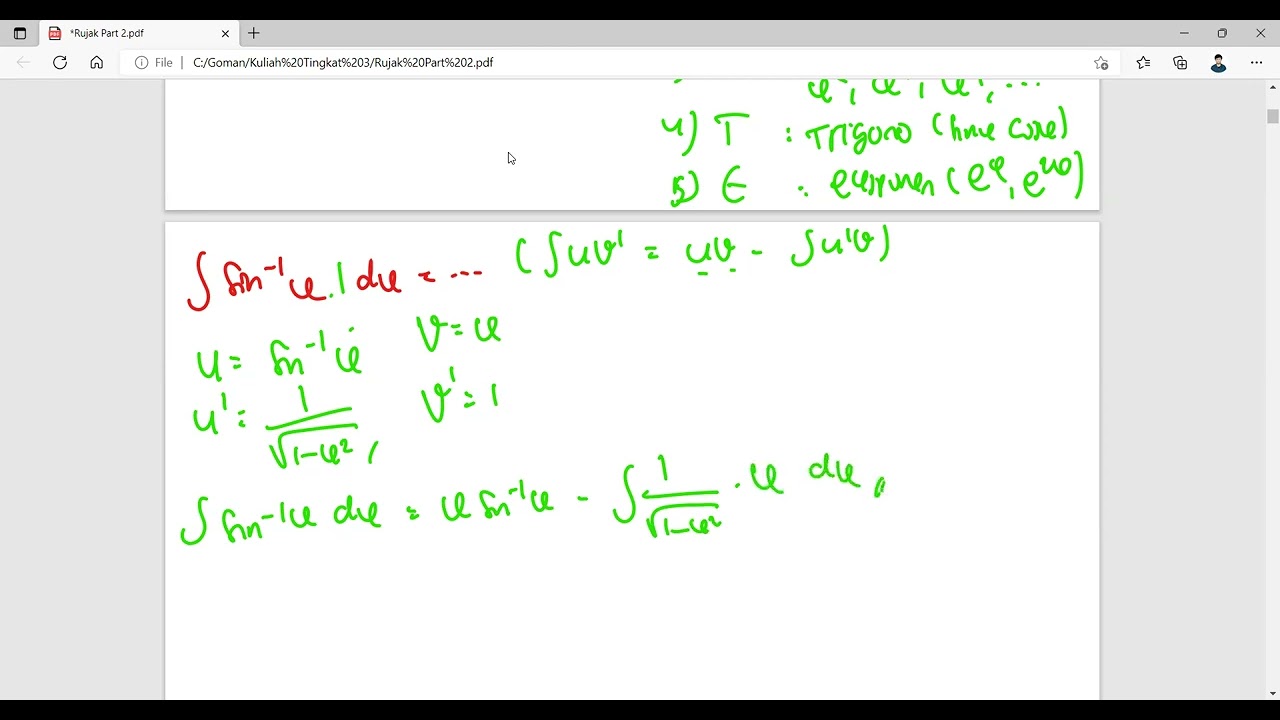 *Rujak Part 2.pdf
File | C:/Goman/Kuliah%20Tingkat%203/Rujak%20Part%202.pdf
4) T : Trigono
5) E : eksponen (eˣ, e²ˣ)
∫ sin⁻¹x . 1 dx = ... (∫uv' = uv - ∫u'v)
u = sin⁻¹x v = x
u' = 1/√(1-x²) , v' = 1
∫ sin⁻¹x dx = x sin⁻¹x - ∫ 1/√(1-x²) . x dx